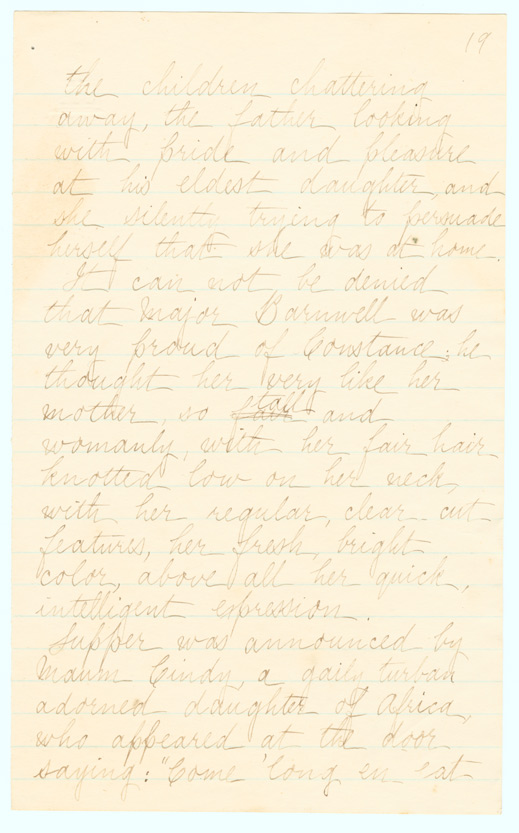 19
the children chattering
away, the father looking
with pride and pleasure
at his eldest daughter, and
she silently trying to persuade
herself that she was at home.
It can not be denied
that Major Barnwell was
very proud of Constance: he
thought her very like her
mother, so tall and
womanly, with her fair hair
knotted low on her neck,
with her regular, clear-cut
features, her fresh, bright
color, above all her quick,
intelligent expression.
Supper was announced by
Maum Cindy, a gaily turban
adorned daughter of Africa,
who appeared at the door
saying: "Come 'long en eat